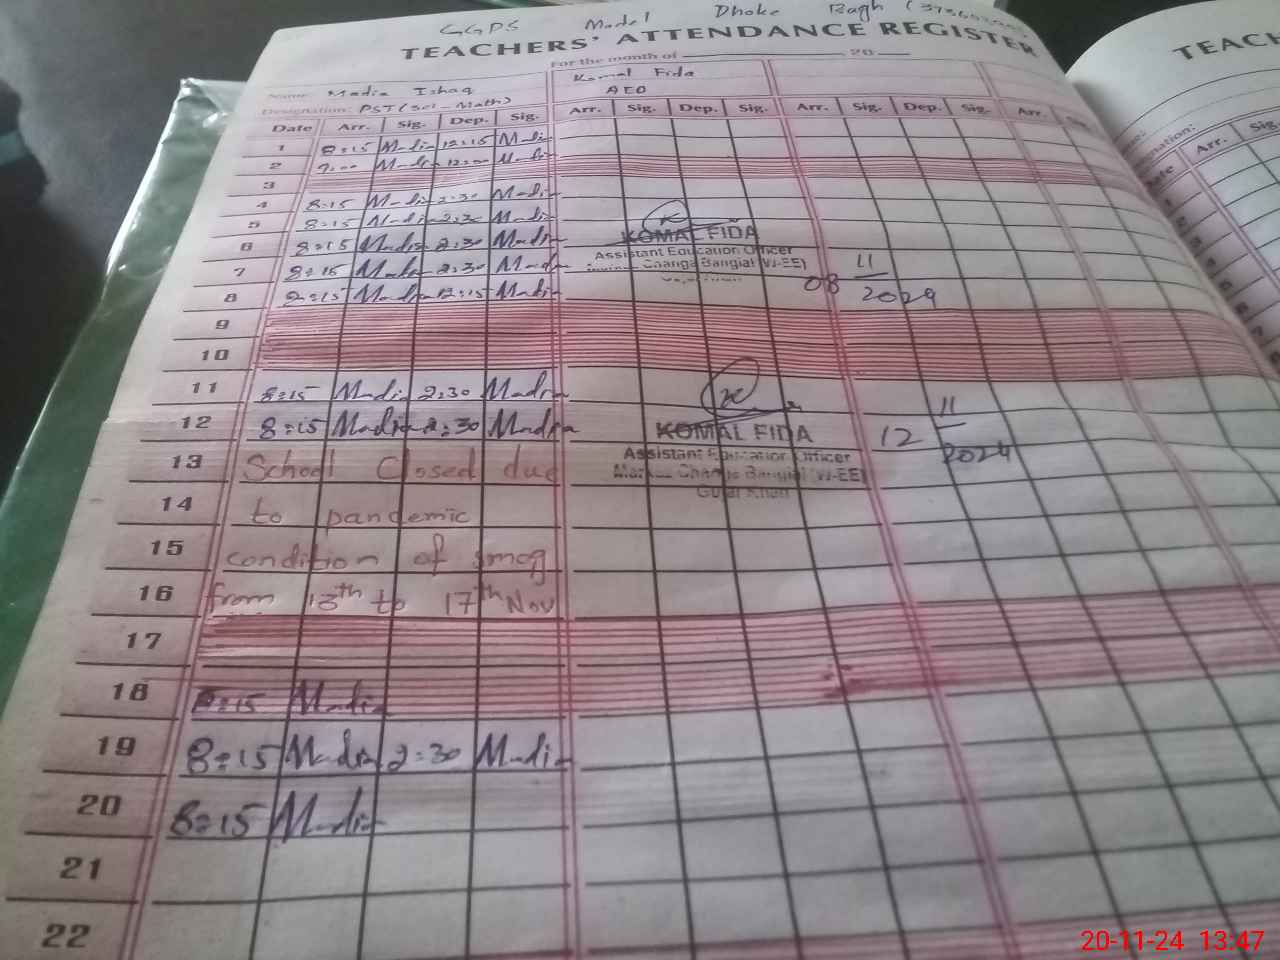 GGPS Model Dhoke Bagh
TEACHERS' ATTENDANCE REGISTER
TEACH
For the month of 20
Name: Madia Ishaq Komal Fida
Designation: PST (Sci-Math) AEO
Date Arr. Sig. Dep. Sig. Arr. Sig. Dep. Sig. Arr. Sig. Dep. Sig. Arr. Sig.
Arr. Sig.
1 8:15 Madia 12:15 Madia
2 Madia Madia
3
4 8:15 Madia 2:30 Madia
5 8:15 Madia 2:30 Madia
6 8:15 Madia 2:30 Madia
KOMAL FIDA
Assistant Education Officer
Changa Bangial (W-EE)
7 8:15 Madia 2:30 Madia
8 8:15 Madia 12:15 Madia
08 11 2024
9
10
11 8:15 Madia 2:30 Madia
12 8:15 Madia 2:30 Madia
KOMAL FIDA
Assistant Education Officer
Changa Bangial (W-EE)
Gujar Khan
12 11 2024
13 School Closed due
14 to pandemic
15 condition of smog
16 from 13th to 17th Nov
17
18 8:15 Madia
19 8:15 Madia 2:30 Madia
20 8:15 Madia
21
22
20-11-24 13:47